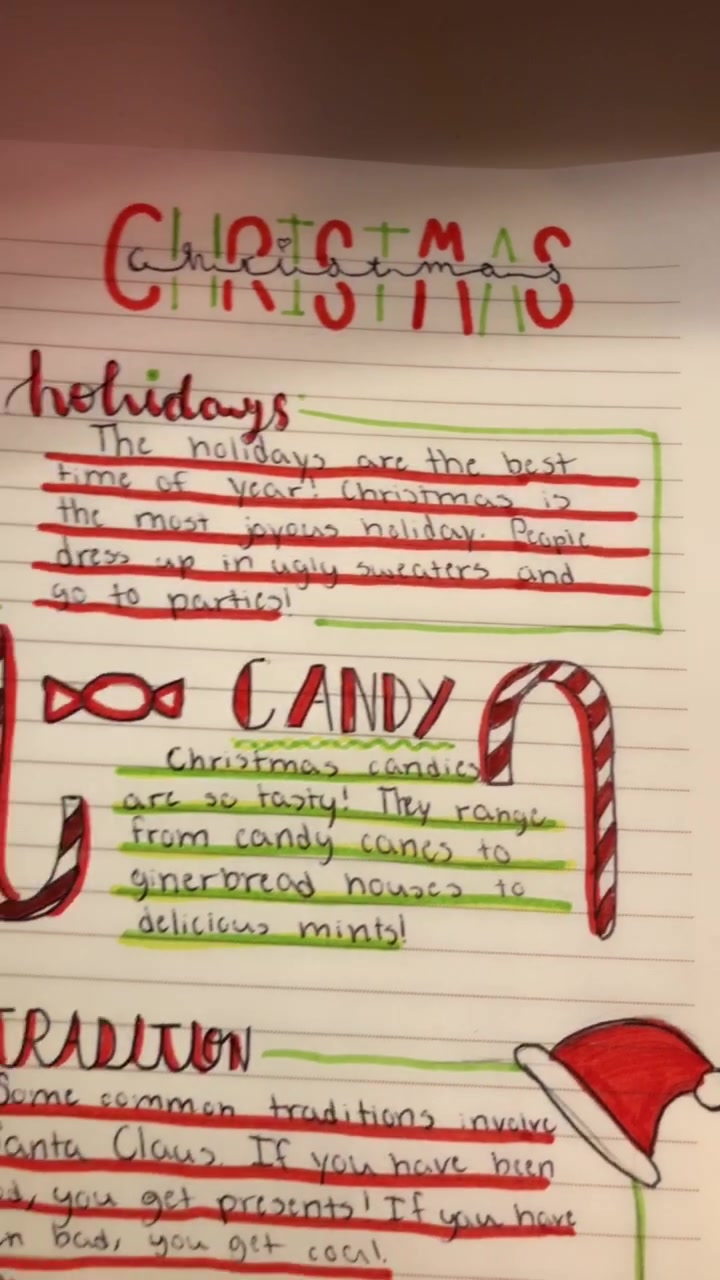 CHRISTMAS
christmas
holidays
The holidays are the best
time of year! Christmas is
the most joyous holiday. People
dress up in ugly sweaters and
go to parties!
CANDY
Christmas candies
are so tasty! They range
from candy canes to
ginerbread houses to
delicious mints!
TRADITION
Some common traditions involve
anta Claus. If you have been
d, you get presents! If you have
n bad, you get coal.